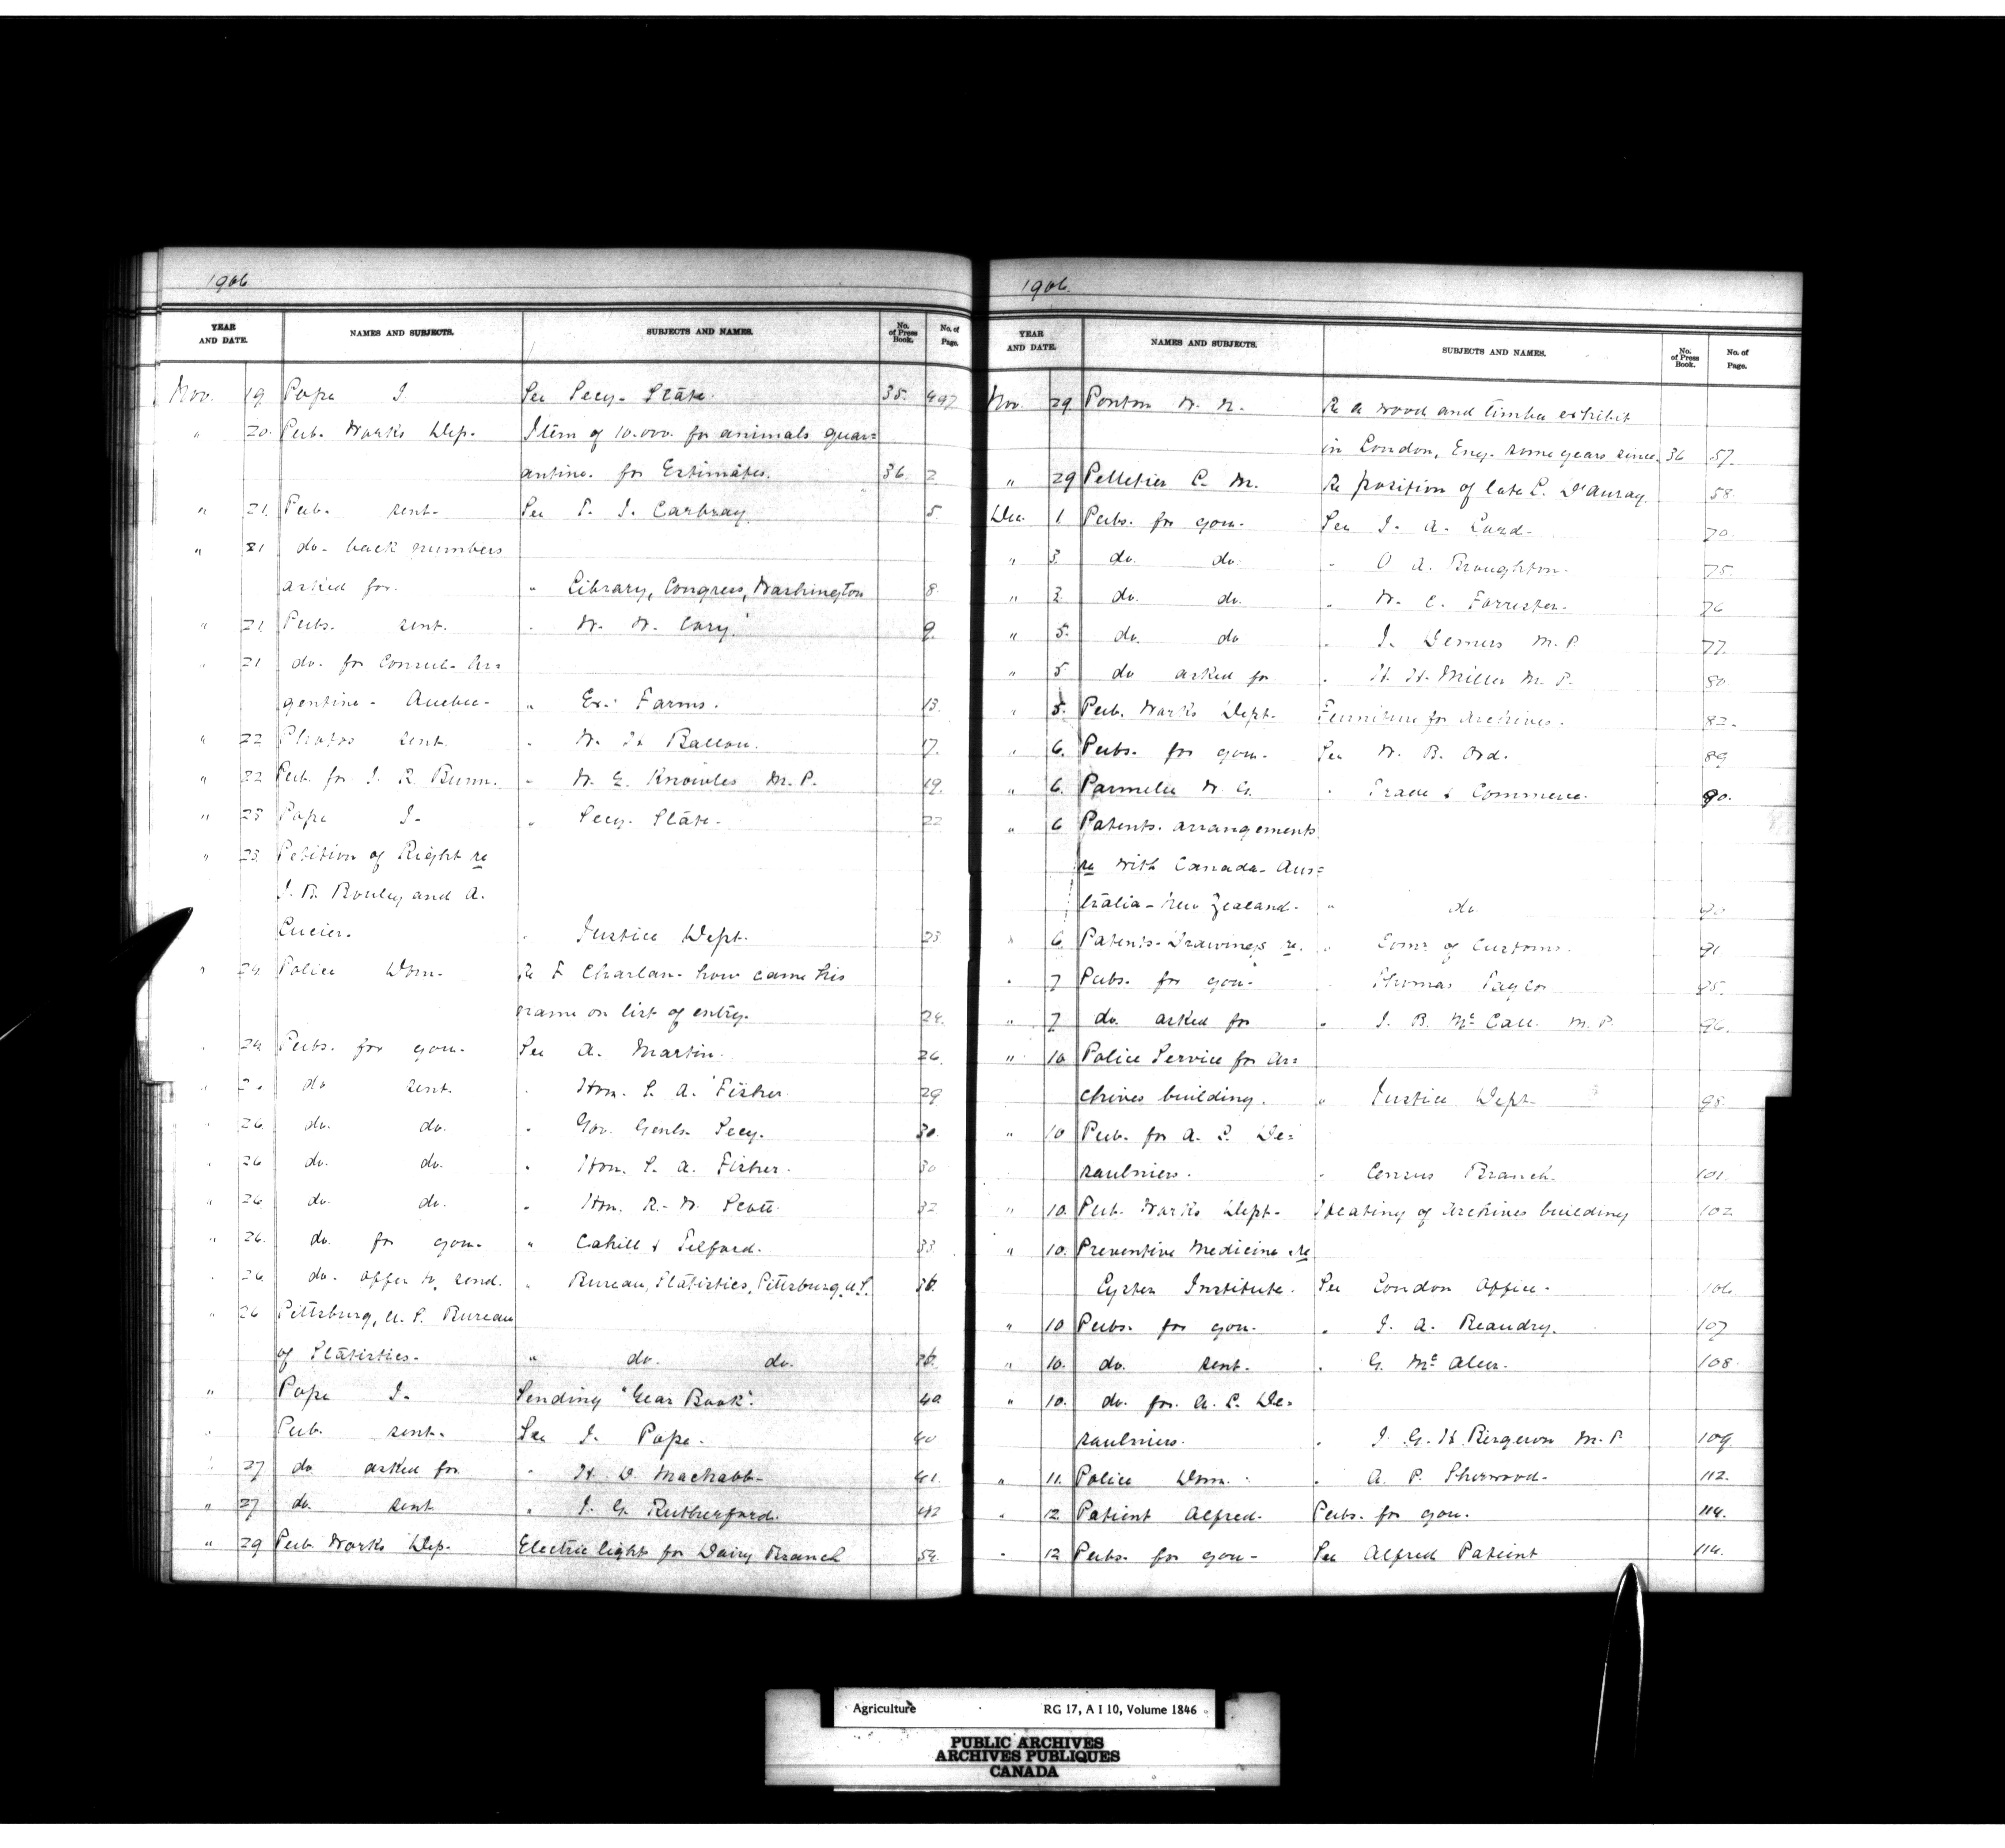 1906
YEAR AND DATE. NAMES AND SUBJECTS. SUBJECTS AND NAMES. No. of Press Book. No. of Page.
Nov. 19 Pope J. See Secy. State. 35. 497
" 20. Pub. Works Dep. Item of 10.000. for animals quar=
antine. for Estimates. 36. 2
" 21. Pub. sent. See T. J. Carbray 5.
" 21 do. back numbers
asked for. " Library, Congress, Washington 8.
" 21. Pubs. sent. " W. W. Cary. 9.
" 21 do. for Consul- Ar=
gentine - Quebec- " Ex. Farms. 13.
" 22 Photos sent. " W. H. Ballou. 17.
" 22 Pub. for J. R. Bunn. " W. E. Knowles M.P. 19.
" 23 Pope J. " Secy. State. 22
" 23. Petition of Right re
J. B. Rouley and A.
Lucier. " Justice Dept. 23
" 24. Police Dom. Re F. Charlan- how came his
name on list of entry. 24.
" 24. Pubs. for gom. See A. Martin. 26.
" do sent. " Hon. S. A. Fisher. 29
" 26. do. do. " Gov. Genls. Secy. 30.
" 26 do. do. " Hon. S. A. Fisher. 30
" 26. do. do. " Hon. R. W. Scott. 32
" 26. do. for gom. " Cahill & Telford. 33.
" 26. do. offer to send. " Bureau, Statistics, Pittsburg, U.S. 36.
" 26 Pittsburg, U. S. Bureau
of Statistics. " do. do. 36.
" Pope J. Sending "Year Book". 40.
" Pub. sent. See J. Pope. 40
" 27 do asked for " H. D. Machabb- 41.
" 27 do. sent " J. G. Rutherford. 42
" 29 Pub. Works Dep. Electric light for Dairy Branch 54.
1906.
YEAR AND DATE. NAMES AND SUBJECTS. SUBJECTS AND NAMES. No. of Press Book. No. of Page.
Nov. 29. Ponton W. N. Re a wood and timber exhibit
in London, Eng. some years since. 36 57.
" 29 Pelletier C. M. Re position of late L. D'Auray. 58.
Dec. 1. Pubs. for gom. See J. A. Lord. 70.
" 3. do. do. " O. A. Broughton. 75.
" 3. do. do. " W. C. Forrester. 76
" 5. do. do " J. Demers M.P. 77.
" 5 do asked for " H. H. Miller M.P. 80.
" 5. Pub. Works Dept. Furniture for Archives. 82.
" 6. Pubs. for gom. See W. B. Ord. 89
" 6. Parmelee W. G. " Trade & Commerce. 90.
" 6 Patents. arrangements
re with Canada- Aus=
tralia- New Zealand. " do. 90
" 6. Patents-Drawings re. " Comr. of Customs. 91
" 7 Pubs. for gom. " Thomas Taylor 95.
" 7 do. asked for " J. B. McCall. M.P. 96.
" 10 Police Service for Ar=
chives building. " Justice Dept. 98.
" 10 Pub. for A. L. De=
saulniers. " Census Branch. 101.
" 10. Pub. Works Dept. Heating of Archives building 102
" 10. Preventive Medicine re
Lyster Institute. See London Office. 106
" 10 Pubs. for gom. " J. A. Beaudry. 107
" 10. do. sent. " G. McAleer. 108.
" 10. do. for A. L. De=
saulniers. " J. G. H. Bergeron M.P. 109
" 11. Police Dom. " A. P. Sherwood. 112.
" 12 Patient Alfred. Pubs. for gom. 114.
" 12 Pubs. for gom. See Alfred Patient 114.
Agriculture RG 17, A I 10, Volume 1846
PUBLIC ARCHIVES
ARCHIVES PUBLIQUES
CANADA